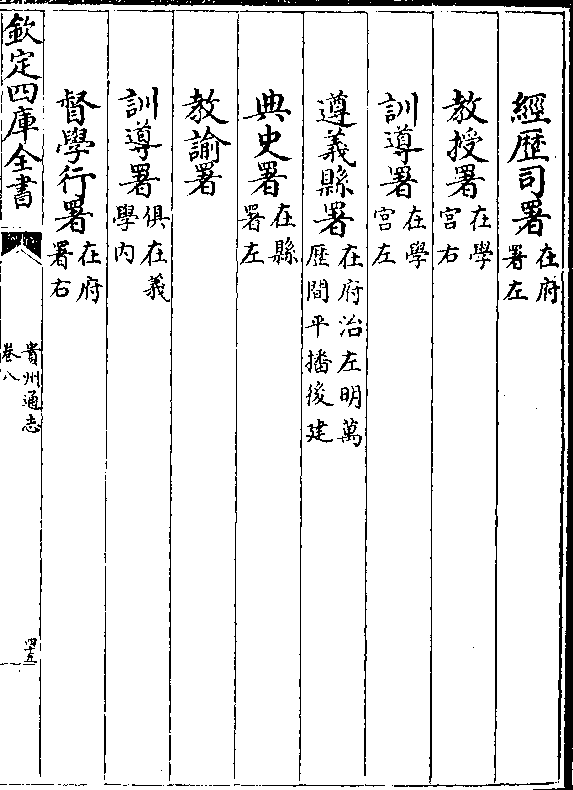 經歷司署在府署左
教授署在學宮右
訓導署在學宮左
遵義縣署在府治左明萬歷間平播後建
典史署在縣署左
教諭署
訓導署俱在義學內
督學行署在府署右
欽定四庫全書
貴州通志
卷八
四十五